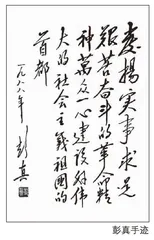 发扬实事求是
艰苦奋斗的革命精
神万众一心建设伟
大的社会主义祖国的
首都
一九八八年 彭真
彭真手迹